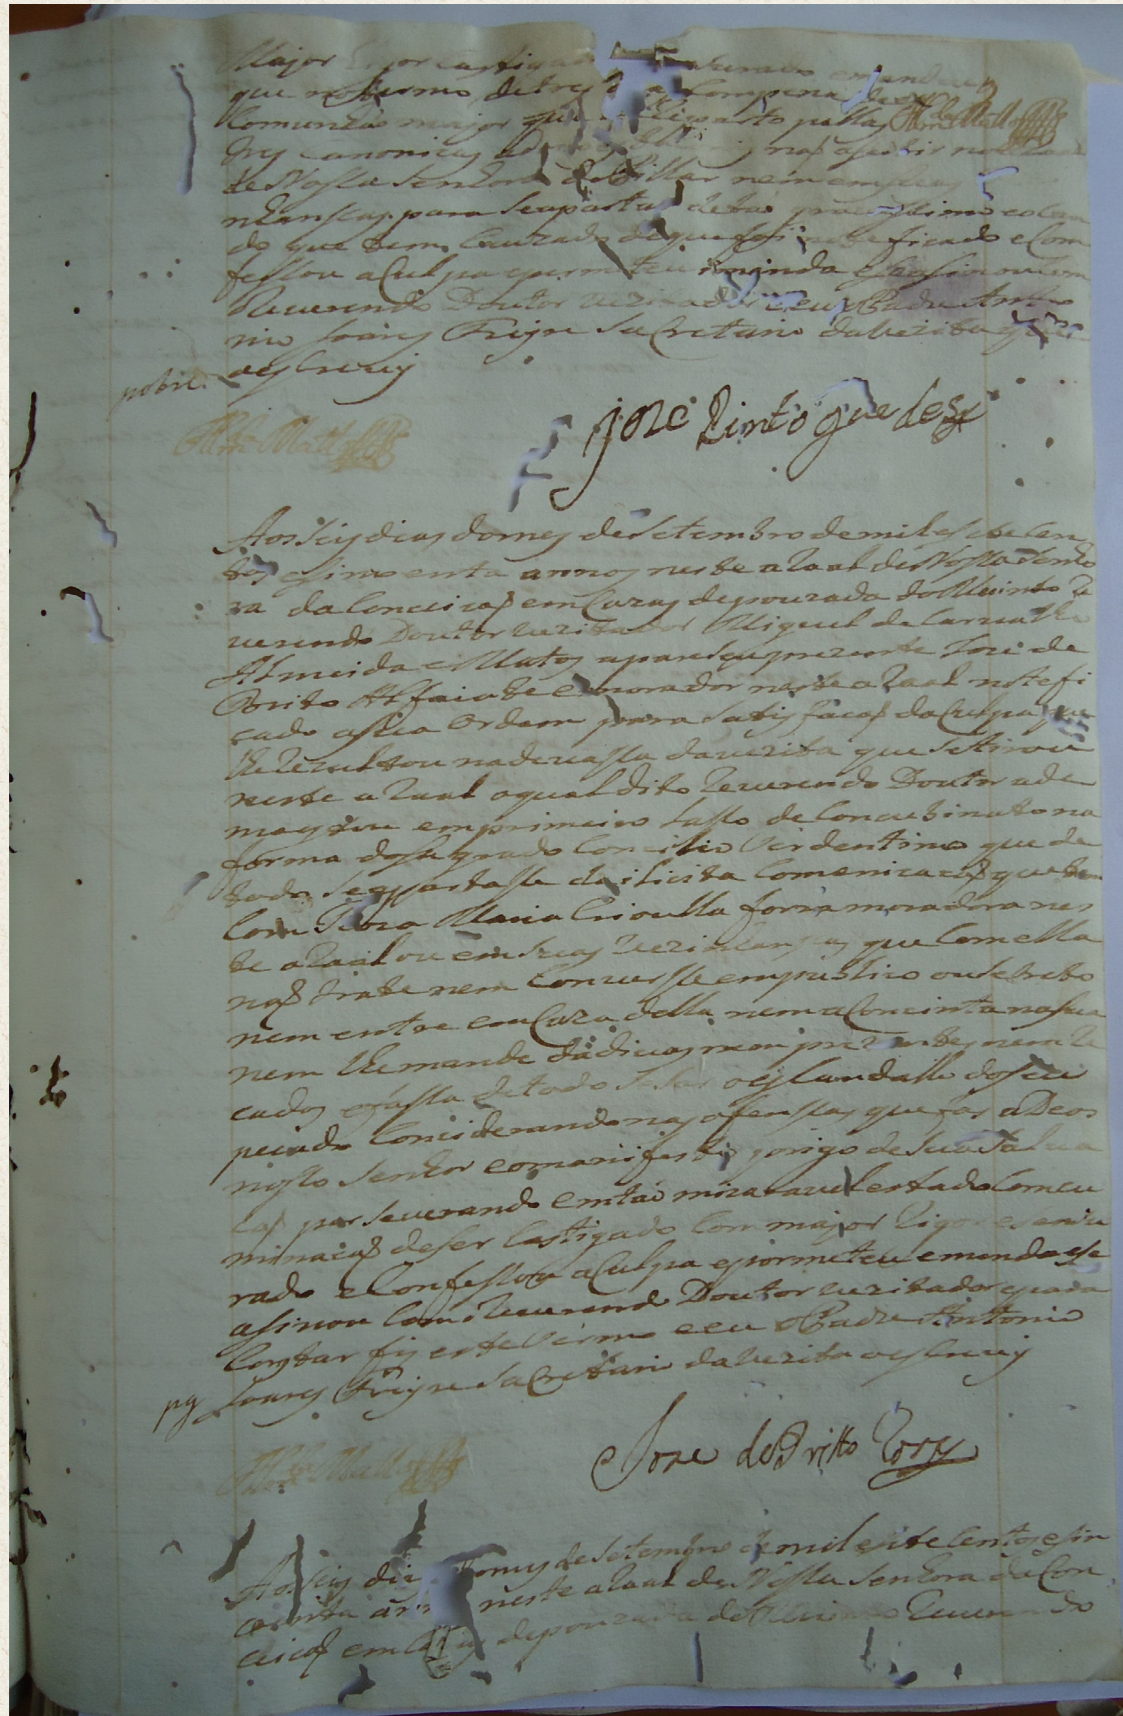 Major
que no termo de tres
Comunhaõ major que
tres canonicas
de Nossa Senhora do Pillar nem em suas
nhanscas para se apartar de taõ
do que tem cauzado de que foi noteficado e com
fessou a Culpa e prometeu iminda e asinou com
Reverendo Doutor vezitador e eu o Padre Anto
nio Soares Freyre Sacretario da vezita
o escrevy
pobre
Joze Pinto Guedes
Aos seis dias do mes de setembro de mil e sete cen
tos e sincoenta annos neste aRaal de Nossa Senho
ra da Conceicaõ em Cazas de pouzada do Muinto Re
verendo Doutor vezitador Miguel de Carvalho
Almeida e Matos apareseu prezente Joze de
Brito Alfaiate e morador neste aRaal notefi
cado a sua ordem para satisfacaõ da Culpa que
lhe Rezultou na devassa da vezita que se tirou
neste aRaal o qual dito Reverendo Doutor ade
moestou em primeiro lasso de Concubinato na
forma do sagrado Concilio Tridentino que de
todo se apartasse da ilicita Comenicacaõ que tem
Com Roza Maria Crioulla forra moradora nes
te aRaal ou em suas vezinhansas que Com ella
naõ trate nem converse em publico ou secreto
nem entre em Caza della nem a Concinta na sua
nem lhe mande dadivas nem prezentes nem Re
cados e fassa de todo sesar o escandallo do seu
pecado Conciderando nas ofensas que fas a Deos
nosso Senhor e o manifesto prigo de sua salva
caõ perseverando em taõ mizaravel estado Com cu
minacaõ de ser Castigado Com major Rigor e sensu
rado e Confessou a Culpa e prometeu emenda e se
asinou Com o Reverendo Doutor vezitador e para
Constar fis este termo e eu o Padre Antonio
Soares Freyre Sacretario da vezita o escrevy
pg
Joze de Britto
Aos seis dias do mes de setembro de mil e sete centos e sin
coenta annos neste aRaal de Nossa Senhora da Con
ceicaõ em Cazas de pouzada do Muinto Reverendo